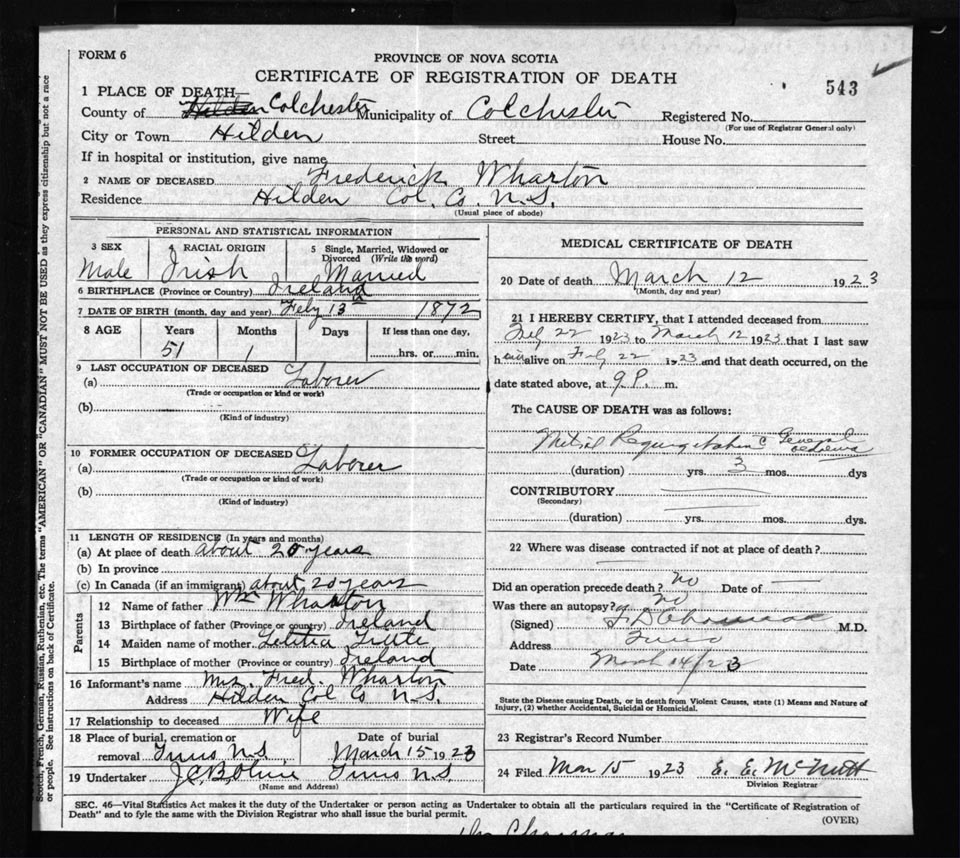 FORM 6
PROVINCE OF NOVA SCOTIA
CERTIFICATE OF REGISTRATION OF DEATH
543
1 PLACE OF DEATH
County of Hilden Colchester Municipality of Colchester Registered No.
(For use of Registrar General only)
City or Town Hilden Street House No.
If in hospital or institution, give name
2 NAME OF DECEASED Frederick Wharton
Residence Hilden Col. Co. N.S.
(Usual place of abode)
PERSONAL AND STATISTICAL INFORMATION
3 SEX 4 RACIAL ORIGIN 5 Single, Married, Widowed or
Divorced (Write the word)
Male Irish Married
6 BIRTHPLACE (Province or Country) Ireland
7 DATE OF BIRTH (month, day and year) Feby 13th 1872
8 AGE Years Months Days If less than one day,
51 1 hrs. or min.
9 LAST OCCUPATION OF DECEASED Laborer
(a)
(Trade or occupation or kind or work)
(b)
(Kind of industry)
10 FORMER OCCUPATION OF DECEASED Laborer
(a)
(Trade or occupation or kind of work)
(b)
(Kind of industry)
11 LENGTH OF RESIDENCE (In years and months)
(a) At place of death about 20 years
(b) In province
(c) In Canada (if an immigrant) about 20 years
Parents
12 Name of father Wm Wharton
13 Birthplace of father (Province or country) Ireland
14 Maiden name of mother Letitia
15 Birthplace of mother (Province or country) Ireland
16 Informant's name Mrs. Fred. Wharton
Address Hilden Col Co N.S.
17 Relationship to deceased Wife
18 Place of burial, cremation or Date of burial
removal Truro N.S. March 15 1923
19 Undertaker Truro N.S.
(Name and Address)
MEDICAL CERTIFICATE OF DEATH
20 Date of death March 12 1923
(Month, day and year)
21 I HEREBY CERTIFY, that I attended deceased from
Feby 22 1923 to March 12 1923 that I last saw
him alive on Feby 22 1923 and that death occurred, on the
date stated above, at 9 P. m.
The CAUSE OF DEATH was as follows:
Mitral Regurgitation c General oedema
(duration) yrs. 3 mos. dys
CONTRIBUTORY
(Secondary)
(duration) yrs. mos. dys.
22 Where was disease contracted if not at place of death?
Did an operation precede death? no Date of
Was there an autopsy? no
(Signed) M.D.
Address Truro
Date March 14/23
State the Disease causing Death, or in death from Violent Causes, state (1) Means and Nature of
Injury, (2) whether Accidental, Suicidal or Homicidal.
23 Registrar's Record Number
24 Filed Mar 15 1923 E. E. McNutt
Division Registrar
SEC. 46—Vital Statistics Act makes it the duty of the Undertaker or person acting as Undertaker to obtain all the particulars required in the "Certificate of Registration of
Death" and to fyle the same with the Division Registrar who shall issue the burial permit.
(OVER)
Scotch, French, German, Russian, Ruthenian, etc. The terms "AMERICAN" OR "CANADIAN" MUST NOT BE USED as they express citizenship but not a race
or people. See instructions on back of Certificate.